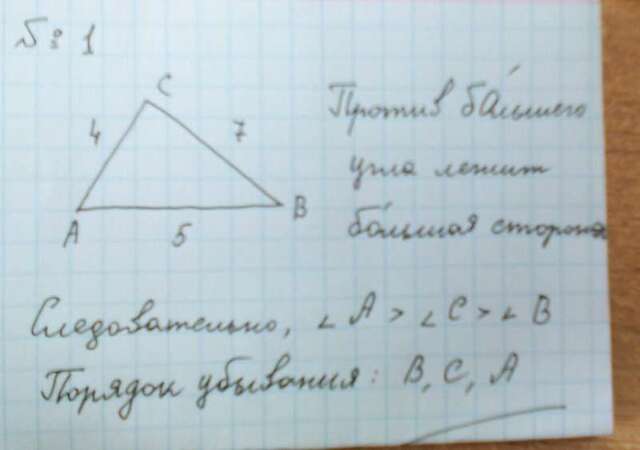 № 1
C
4
7
A
5
B
Против ба́льшего
угла лежит
ба́льшая сторона
Следовательно, ∠ A > ∠ C > ∠ B
Порядок убывания: B, C, A